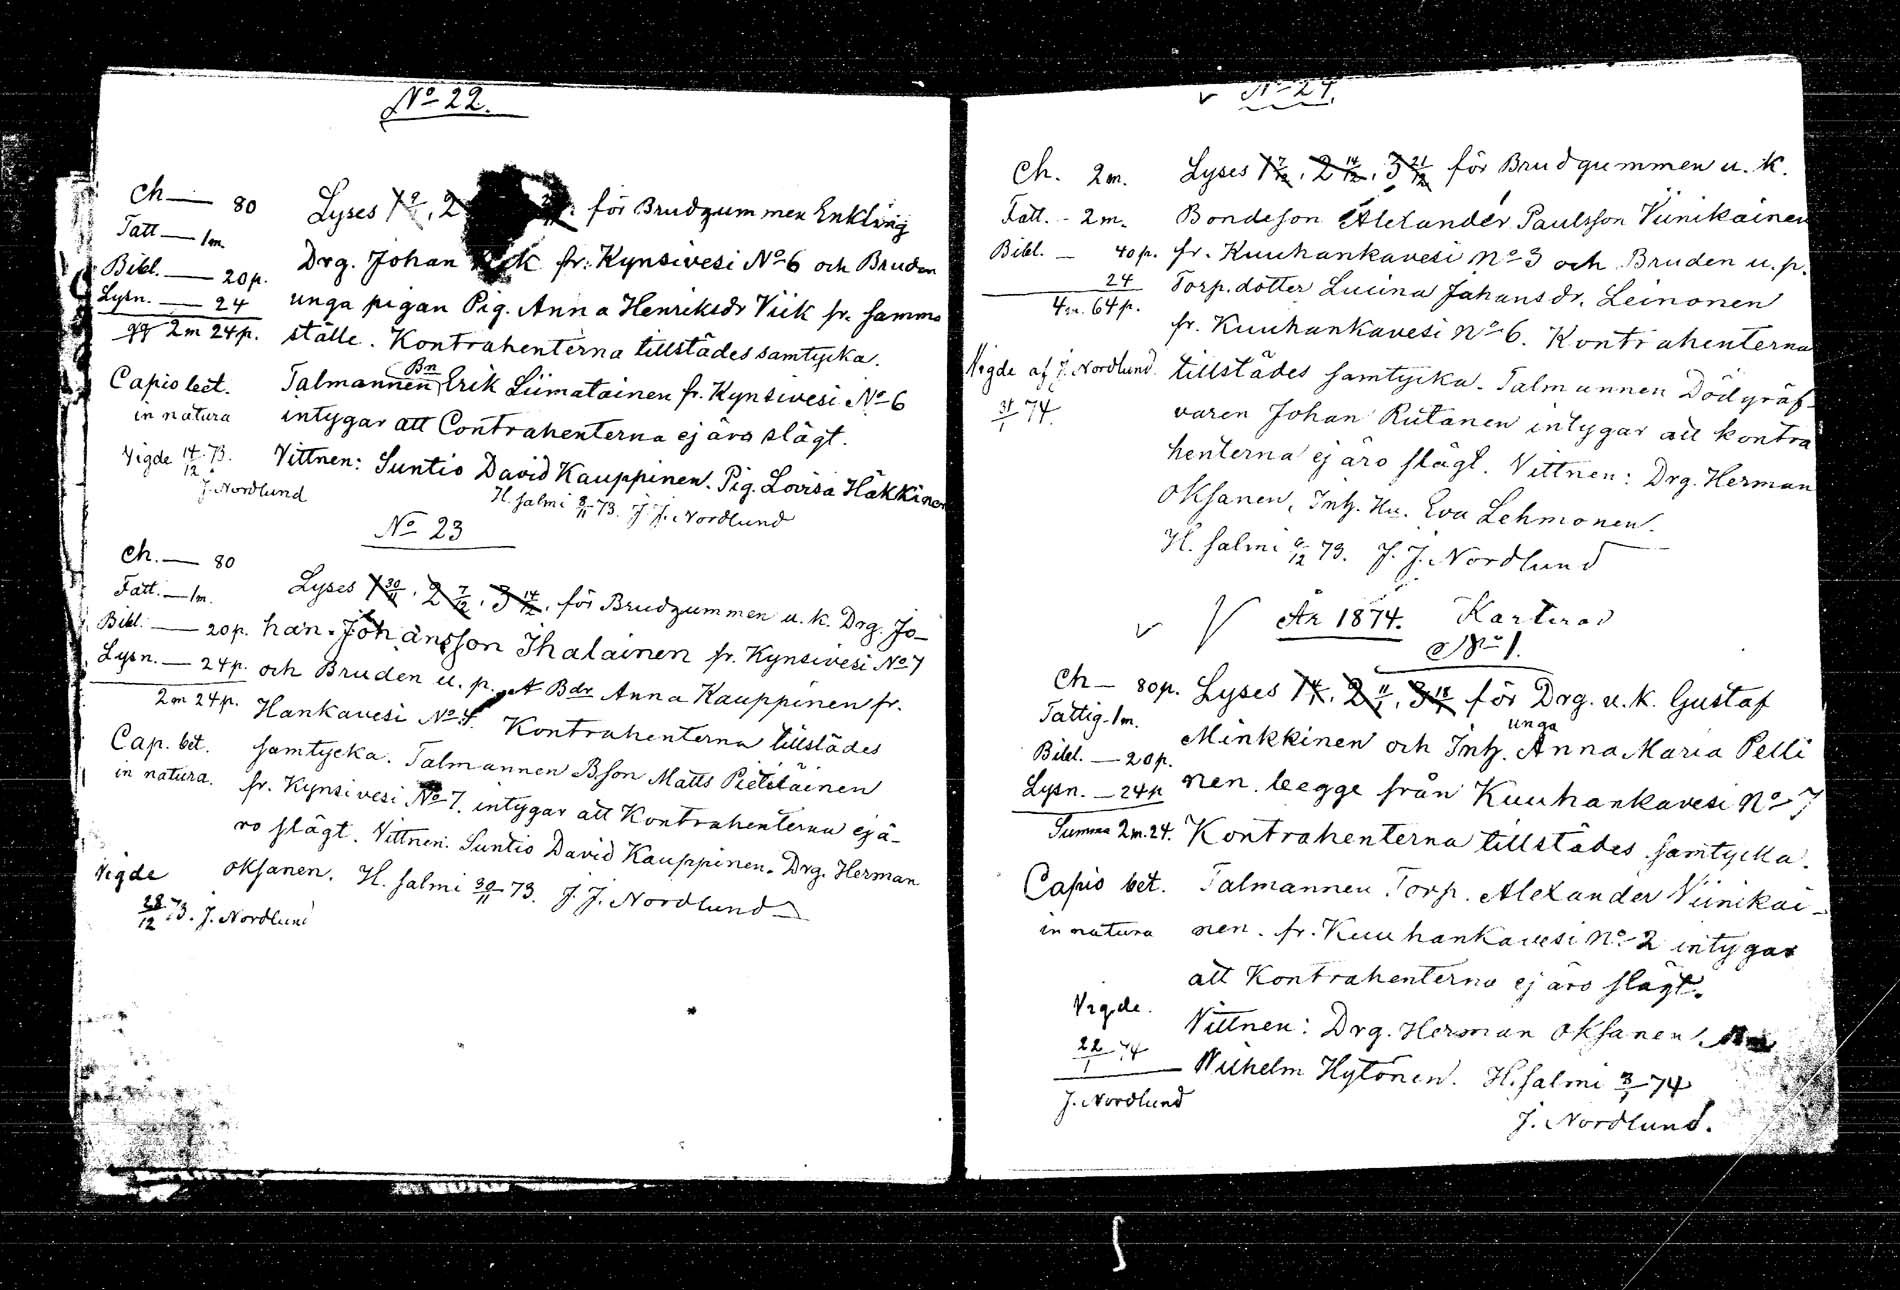 No 22.
Ch — 80
Fatt — 1m.
Bibl. — 20p.
Lysn. — 24
2m 24p.
Capio bet.
in natura
Vigde 14/12 73.
J. Nordlund
Lyses 1 9/11, 2 för Brudgummen Enkling
Drg. Johan fr. Kynsivesi No 6 och Bruden
unga pigan Pig. Anna Henriksdr Viik fr. samma
ställe. Kontrahenterna tillstädes samtycka.
Talmannen Bn Erik Liimatainen fr. Kynsivesi No 6
intygar att Contrahenterna ej äro slägt.
Vittnen: Suntio David Kauppinen. Pig. Lovisa Häkkinen
H. salmi 8/11 73. J. J. Nordlund
No 23
Ch. — 80
Fatt. — 1m.
Bibl. — 20p.
Lysn. — 24p.
2m 24p.
Cap. bet.
in natura.
Vigde
28/12 73. J. Nordlund
Lyses 1 30/11, 2 7/12, 3 14/12, för Brudgummen u. k. Drg. Jo-
han Johansson Ihalainen fr. Kynsivesi No 7
och Bruden u. p. Bdr Anna Kauppinen fr.
Hankavesi No 4. Kontrahenterna tillstädes
samtycka. Talmannen Bson Matts Pietiläinen
fr. Kynsivesi No 7. intygar att Kontrahenterna ej ä-
ro slägt. Vittnen: Suntio David Kauppinen. Drg. Herman
Oksanen. H. salmi 30/11 73. J. J. Nordlund
No 24.
Ch. 2m.
Fatt. - 2m.
Bibl. — 40p.
24
4m. 64p.
Vigde af J. Nordlund.
31/1 74.
Lyses 1 7/12, 2 14/12, 3 21/12 för Brudgummen u. k.
Bondeson Alexander Paulsson Viinikainen
fr. Kuuhankavesi No 3 och Bruden u. p.
Torp. dotter Lucina Johansdr. Leinonen
fr. Kuuhankavesi No 6. Kontrahenterna
tillstädes samtycka. Talmannen Dödgräf-
varen Johan Rutanen intygar att kontra
henterna ej äro slägt. Vittnen: Drg. Herman
Oksanen, Inh. Hu. Eva Lehmonen.
H. salmi 6/12 73. J. J. Nordlund
År 1874.
No 1.
Ch — 80p.
Fattig - 1m.
Bibl. — 20p.
Lysn. — 24p
Summa 2m. 24.
Capio bet.
in natura
Vigde.
22/1 74
J. Nordlund
Lyses 1 4/1, 2 11/1, 3 18/1 för Drg. u. k. Gustaf
Minkkinen och Inh. unga Anna Maria Pelli
nen. begge från Kuuhankavesi No 7
Kontrahenterna tillstädes samtycka.
Talmannen Torp. Alexander Viinikai-
nen. fr. Kuuhankavesi No 2 intygar
att Kontrahenterna ej äro slägt.
Vittnen: Drg. Herman Oksanen.
Wilhelm Hytönen. H. salmi 3/1 74
J. Nordlund.